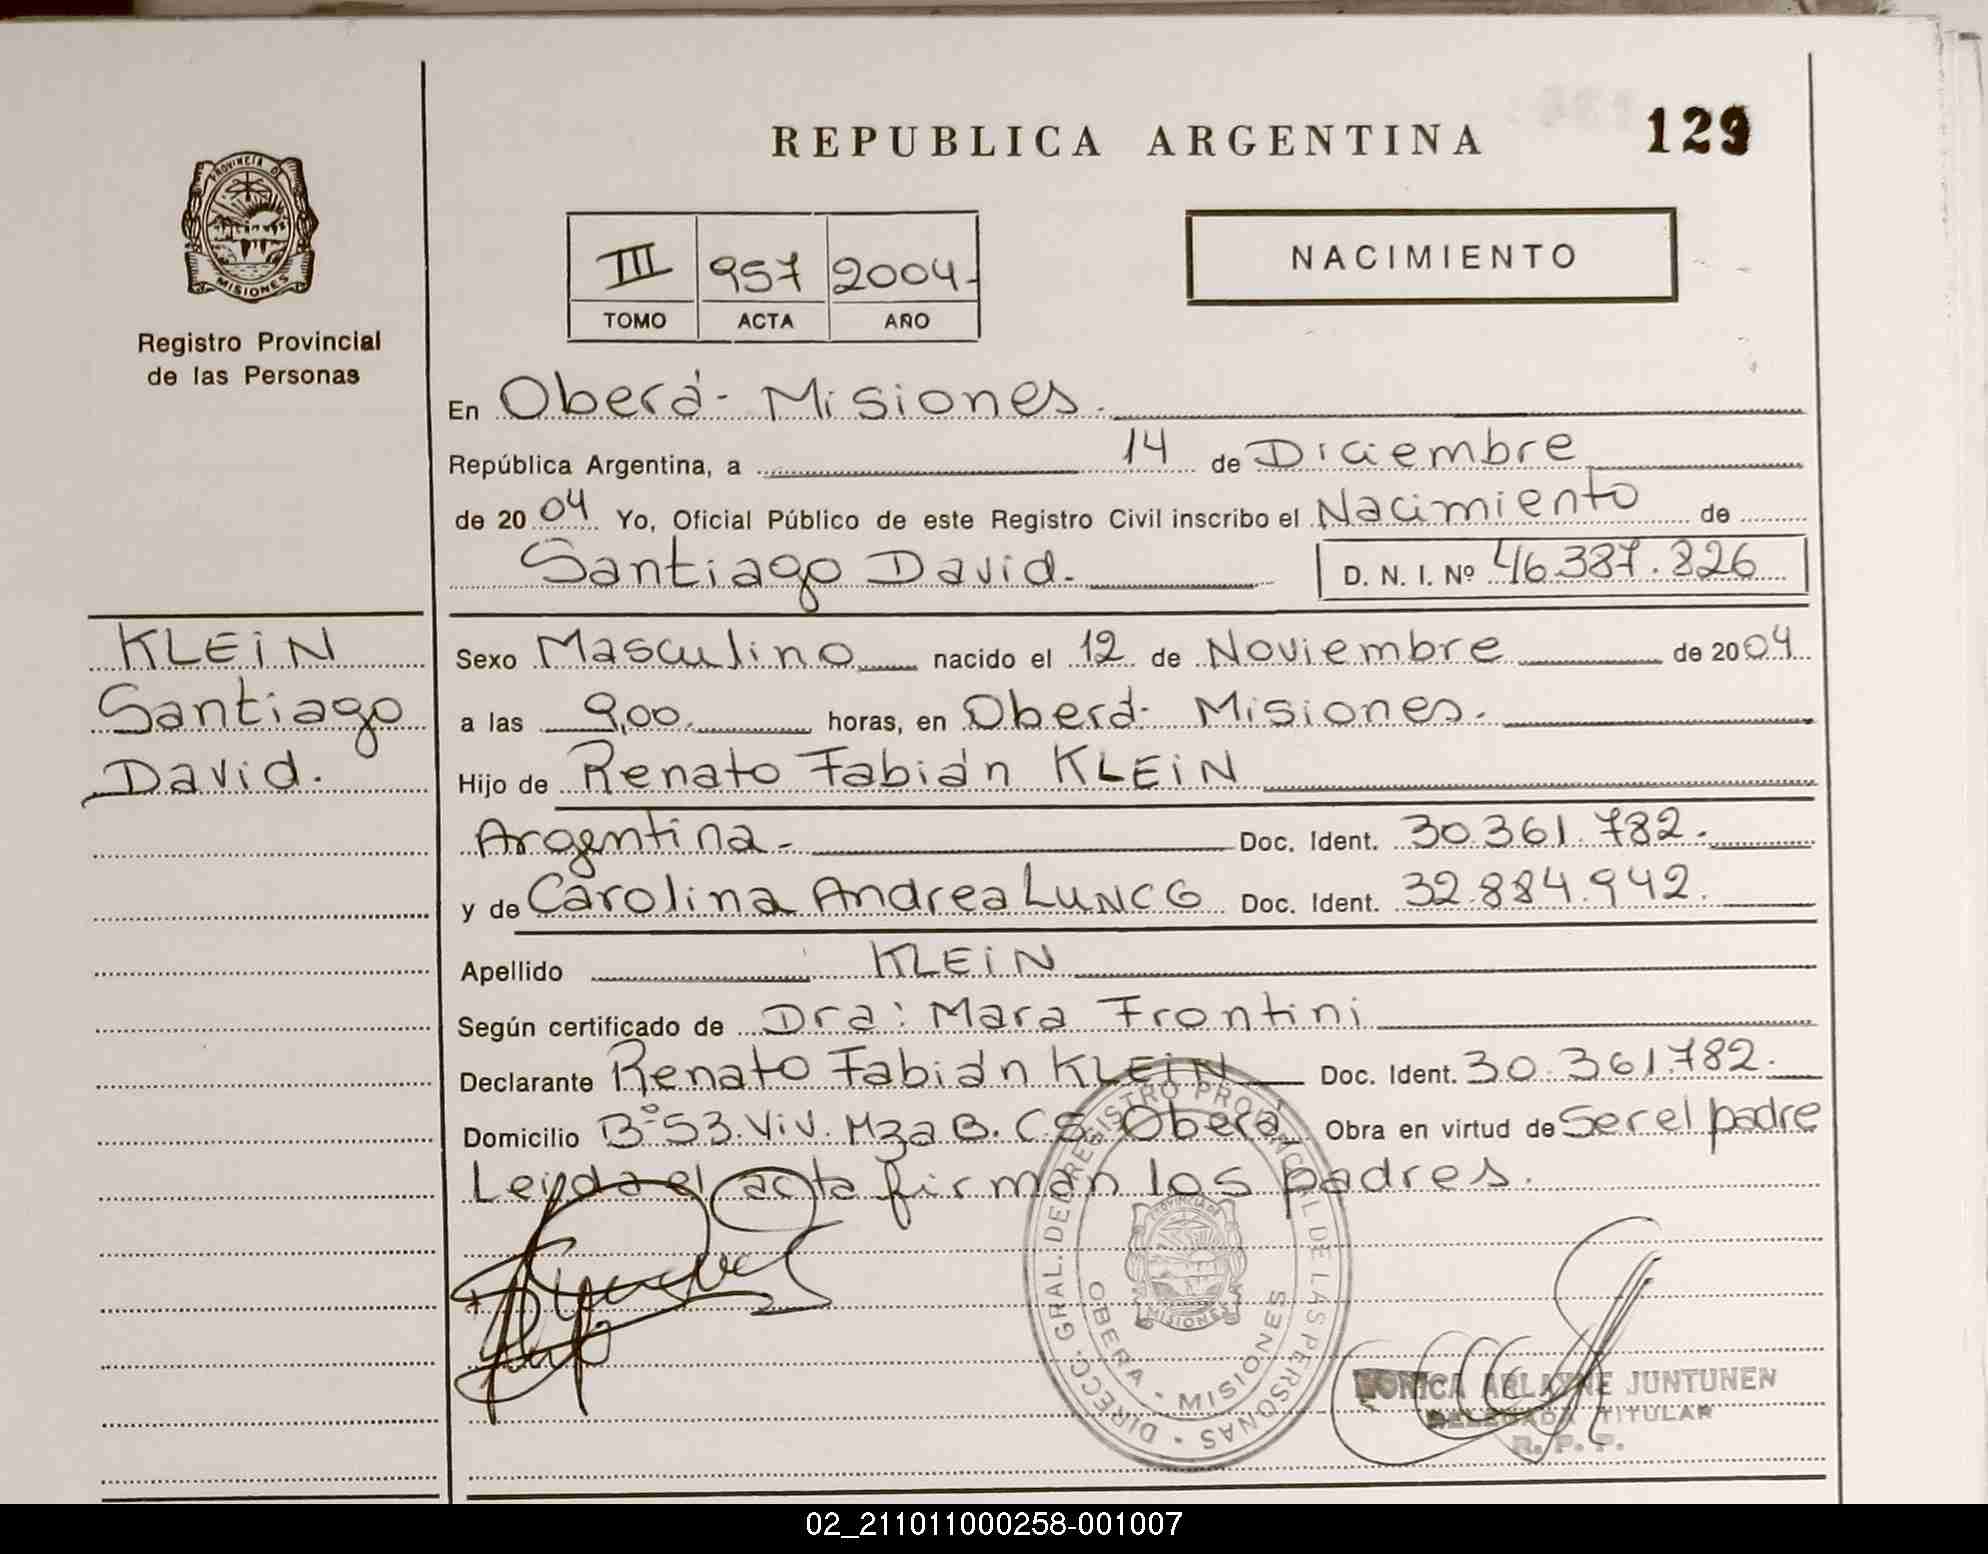 REPUBLICA ARGENTINA 129
PROVINCIA DE
MISIONES
Registro Provincial
de las Personas
NACIMIENTO
III 957 2004-
TOMO ACTA AÑO
En Oberá - Misiones.
República Argentina, a 14 de Diciembre
de 2004 Yo, Oficial Público de este Registro Civil inscribo el Nacimiento de
Santiago David. D. N. I. Nº 46.387.826
KLEiN
Santiago
David.
Sexo Masculino nacido el 12 de Noviembre de 2004
a las 9,00. horas, en Oberá - Misiones.
Hijo de Renato Fabián KLEiN
Argentina.- Doc. Ident. 30.361.782.
y de Carolina Andrea LUNCG Doc. Ident. 32.884.942.
Apellido KLEiN
Según certificado de Dra: Mara Frontini
Declarante Renato Fabián KLEiN Doc. Ident. 30.361.782.
Domicilio Bº 53.Viv. Mza B. C.8. Oberá Obra en virtud de Ser el padre
Leida el acta firman los padres.
DIRECC. GRAL. DEL REGISTRO PROVINCIAL DE LAS PERSONAS
OBERA - MISIONES
PROVINCIA DE
MISIONES
MONICA ARLAYNE JUNTUNEN
DELEGADA TITULAR
R. P. P.
02_211011000258-001007